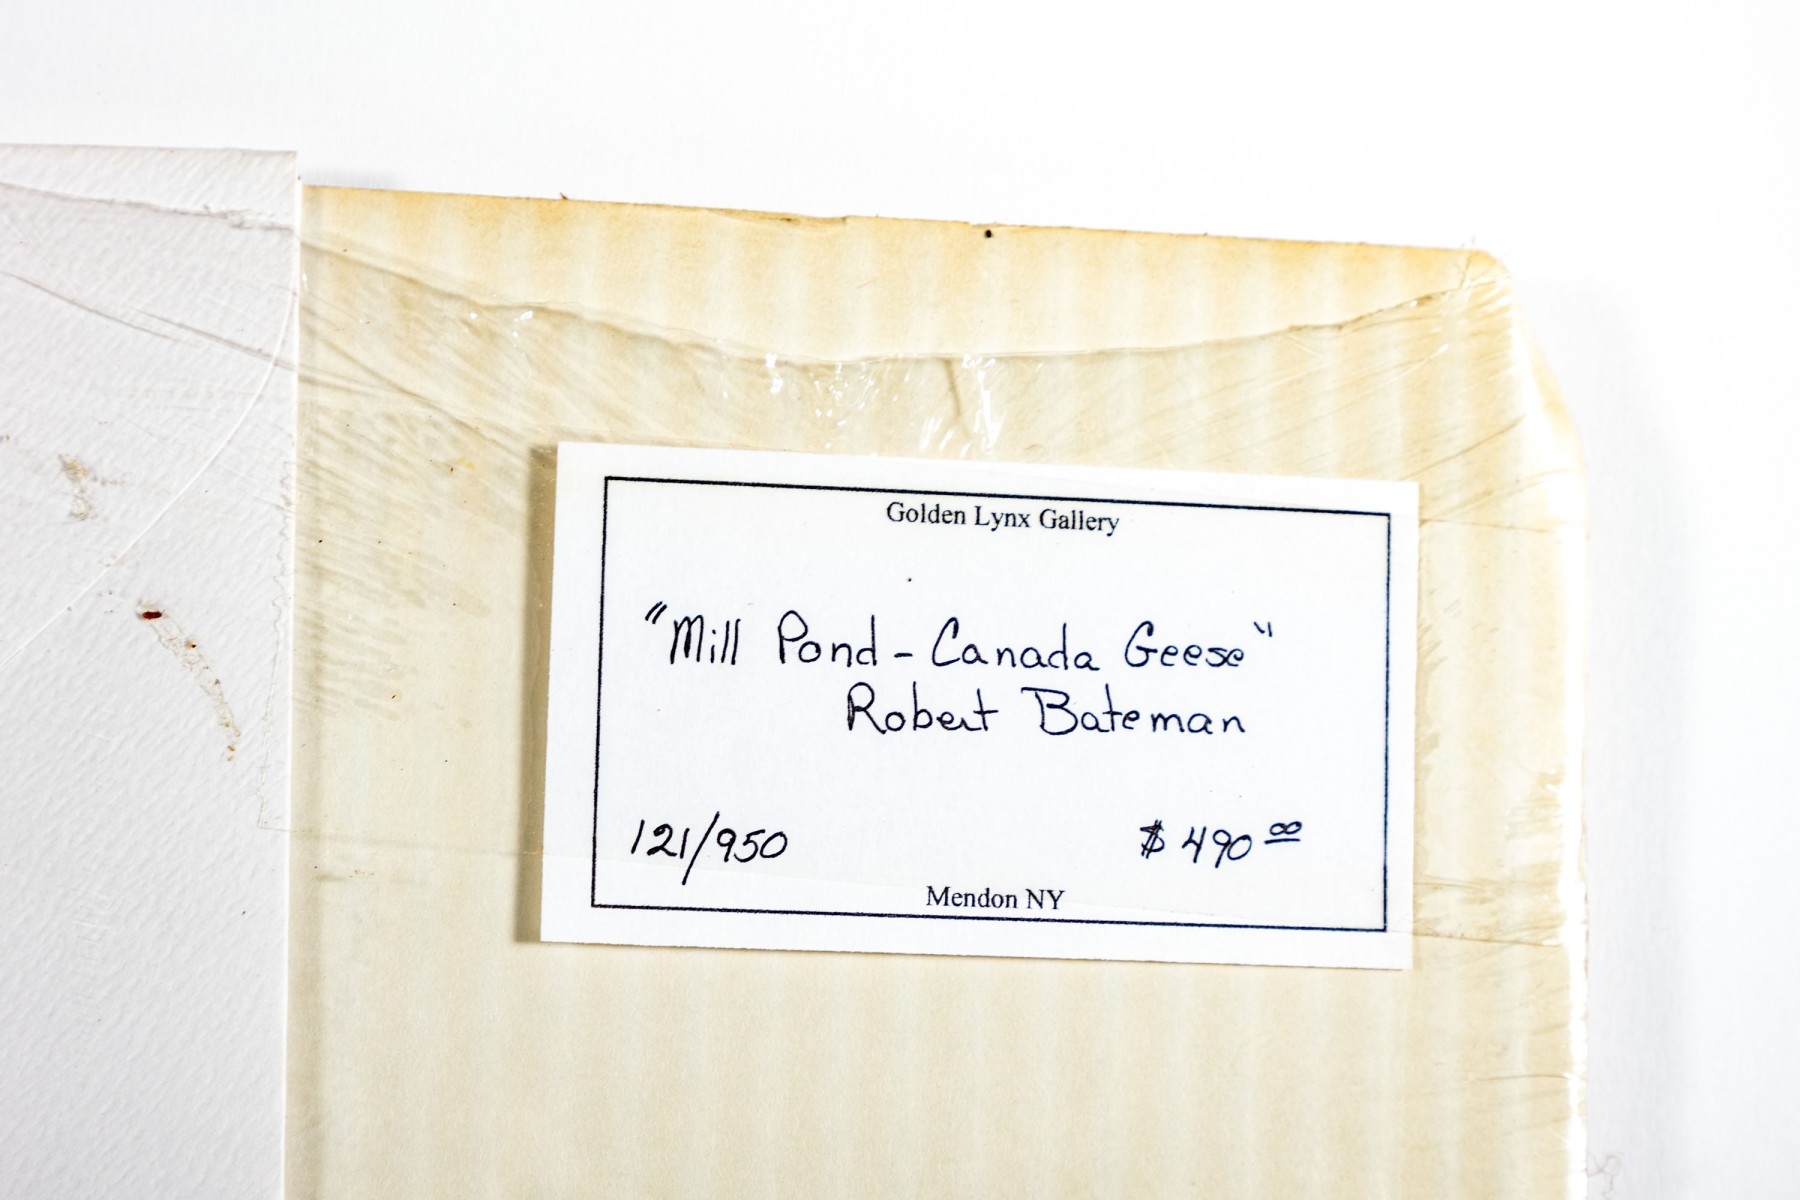 Golden Lynx Gallery
"Mill Pond - Canada Geese"
Robert Bateman
121/950 $490.00
Mendon NY